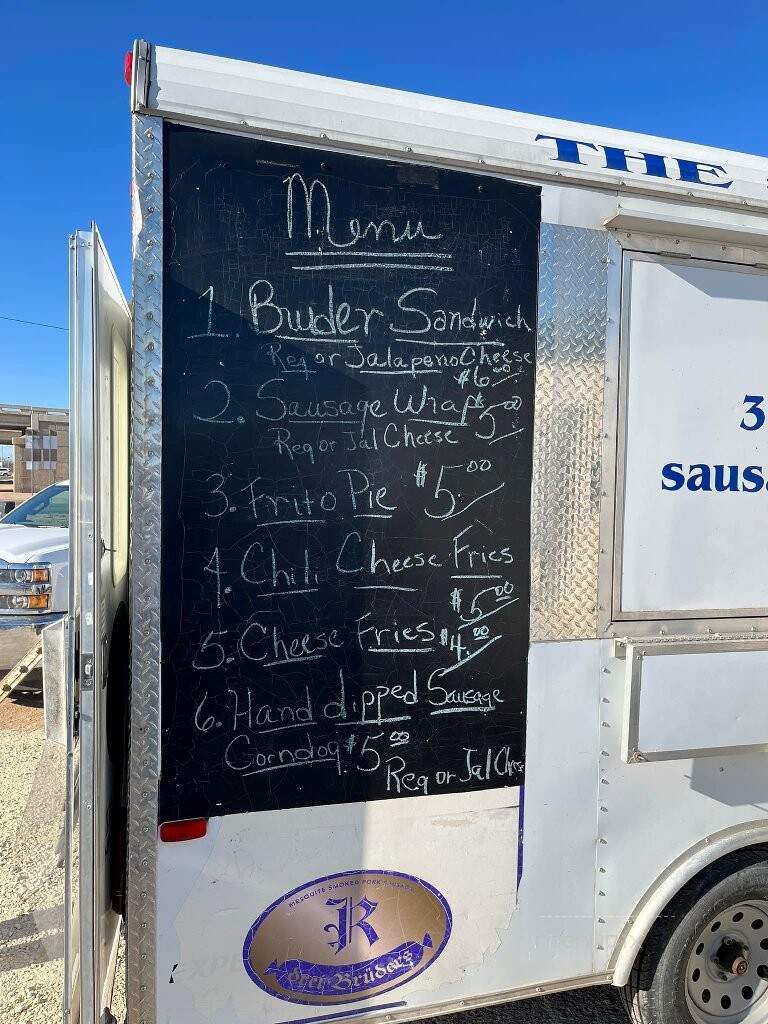 THE
Menu
1. Bruder Sandwich
Reg or Jalapeno Cheese
$6.00
2. Sausage Wrap $5.00
Reg or Jal Cheese
3. Frito Pie $5.00
4. Chili Cheese Fries
$5.00
5. Cheese Fries $4.00
6. Hand dipped Sausage
Corndog $5.00
Reg or Jal Chese
3
sausa
MESQUITE SMOKED PORK SAUSAGE
R
Brüders